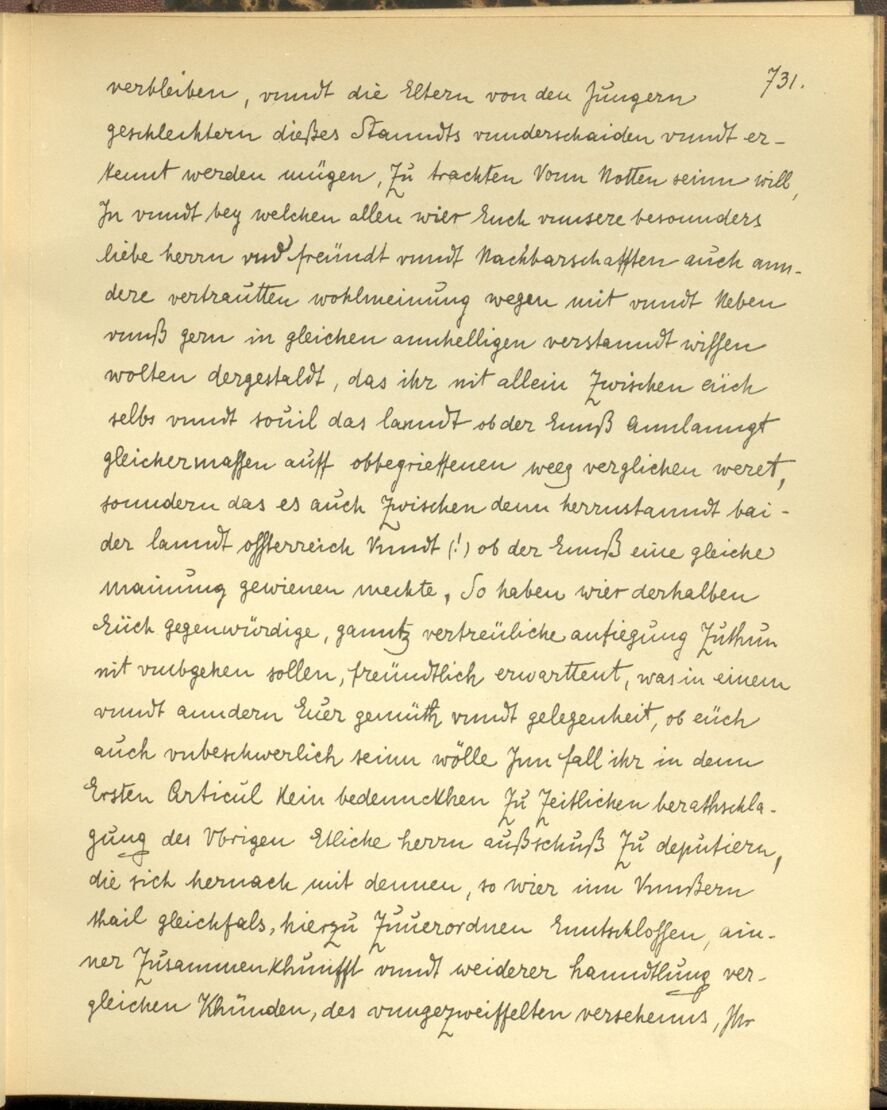 731.
verbleiben, vnndt die Eltern von den Jüngern
geschlechtern dießes Stanndts vnnderschaiden vnndt er-
kennt werden mügen, Zu trachten Vonn Notten seinn will,
In vnndt bey welchen allen wier Euch vnnsere besonnders
liebe herrn vnd freündt vnndt Nachbarschafften auch ann-
dere vertrautten wohlmeinung wegen mit vnndt Neben
vnnß gern in gleichen annhelligen verstanndt wissen
wolten dergestaldt, das ihr nit allein Zwischen eüch
selbs vnndt souil das lanndt ob der Ennß Annlanngt
gleichermassen auff obbegrieffenen weeg verglichen weret,
sonndern das es auch Zwischen denn herrnstanndt bai-
der lanndt Ossterreich Vnndt (!) ob der Ennß eine gleiche
mainung gewienen mechte, So haben wier derhalben
Eüch gegenwürdige, ganntz vertreüliche anfiegung Zuthun
nit vmbgehen sollen, freündtlich erwarttent, was in einem
vnndt anndern Euer gemüth vnndt gelegenheit, ob eüch
auch vnbeschwerlich seinn wölle Inn fall ihr in denn
Ersten Articul Kein bedennckhen Zu Zeitlichen berathschla-
gung des Vbrigen Etliche herrn außschuß Zu deputiern,
die sich hernach mit dennen, so wier inn Vnnßern
thail gleichfals, hierzu Zuuerordnen Enntschlossen, ain-
ner Zusammenkhunfft vnndt weiderer hanndtlung ver-
gleichen Khünden, des vnngezweiffelten versehenns, Ihr